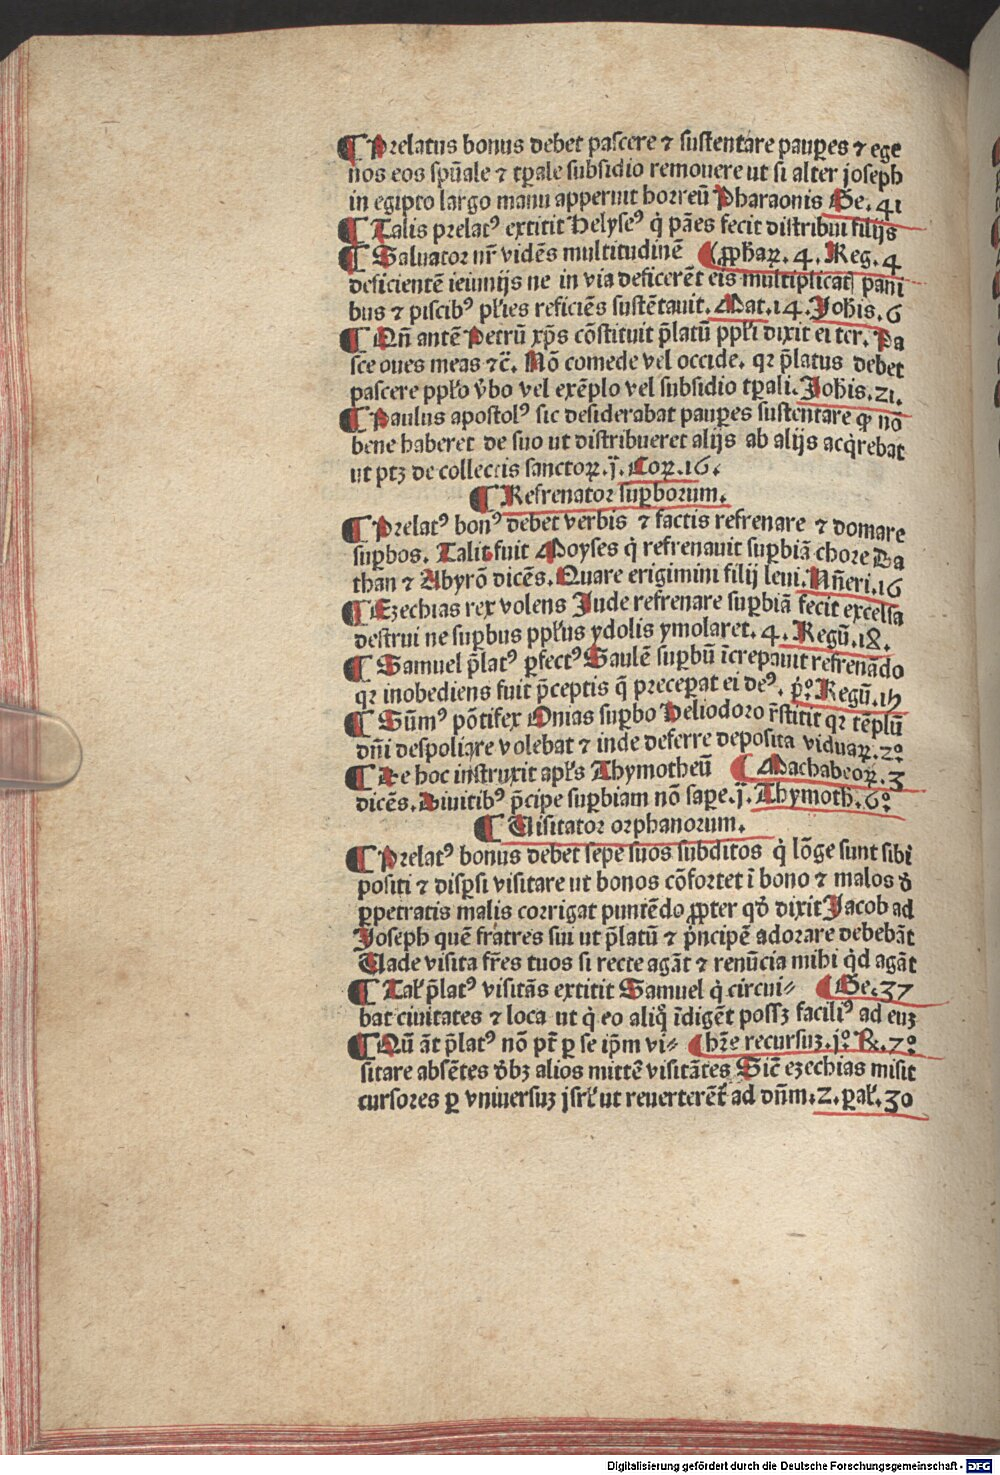 ¶ Prelatus bonus debet pascere ⁊ sustentare pauꝑes ⁊ ege
nos eos spūale ⁊ tꝑale subsidio remouere ut si alter joseph
in egipto largo manu apperuit horreū Pharaonis Ge. 41
¶ Talis prelatꝰ extitit Helyseꝰ q̇ pāes fecit distribui filijs
¶ Saluator nr̄ vidēs multitudinē (ꝓphaꝝ. 4. Reg. 4
deficientē ieiunijs ne in via deficerēt eis multiplicat] pani
bus ⁊ piscibꝰ pl̄ies reficiēs sustētauit. Mat. 14. Joh̄is. 6
¶ Qn̄ antē Petrū xp̄s cōstituit p̄latū ppl̄i dixit ei ter. Pa
sce oues meas ⁊c̄. Nō comede vel occide. qꝛ p̄latus debet
pascere ppl̄o v̄bo vel exēplo vel subsidio tꝑali. Joh̄is. 21.
¶ Paulus apostolꝰ sic desiderabat pauꝑes sustentare ꝙ nō
bene haberet de suo ut distribueret alijs ab alijs acq̇rebat
ut ptꝫ de collectis sanctoꝝ. j̄. Coꝝ. 16.
¶ Refrenator suꝑborum.
¶ Prelatꝰ bonꝰ debet verbis ⁊ factis refrenare ⁊ domare
suꝑbos. Talis fuit Moyses q̇ refrenauit suꝑbiā chore Da
than ⁊ Abyrō dicēs. Quare erigimini filij leui. Nūeri. 16
¶ Ezechias rex volens Jude refrenare suꝑbiā fecit excelsa
destrui ne suꝑbus ppl̄us ydolis ymolaret. 4. Regū. 18.
¶ Samuel p̄latꝰ ꝑfectꝰ Saulē suꝑbū īcrepauit refrenādo
qꝛ inobediens fuit p̄ceptis q̄ preceꝑat ei deꝰ. p̄º. Regū. 15
¶ Sūmꝰ pōtifex Onias suꝑbo Heliodoro r̄stitit qꝛ tēplū
dn̄i despoliare volebat ⁊ inde deferre deposita viduaꝝ. 2º
¶ De hoc instruxit apl̄s Thymotheū (Machabeoꝝ. 3
dicēs. Diuitibꝰ p̄cipe suꝑbiam nō saꝑe. j̄. Thymoth̄. 6º
¶ Visitator orphanorum.
¶ Prelatꝰ bonus debet sepe suos subditos q̇ lōge sunt sibi
positi ⁊ disꝑsi visitare ut bonos cōfortet ī bono ⁊ malos d̄
ꝑpetratis malis corrigat puniēdo ꝓpter qd̄ dixit Jacob ad
Joseph quē fratres sui ut p̄latū ⁊ pͥncipē adorare debebāt
Uade visita fr̄es tuos si recte agāt ⁊ renūcia mihi q̇d agāt
¶ Tal̄ p̄latꝰ visitās extitit Samuel q̇ circui⸗ (Ge. 37
bat ciuitates ⁊ loca ut q̇ eo aliq̇ īdigēt possꝫ faciliꝰ ad euꝫ
¶ Qū āt p̄latꝰ nō pt̄ ꝑ se ip̄m vi⸗ (hr̄e recursuꝫ. jº. R. 7º
sitare absētes dꝫ alios mittē visitātes Sic̄ ezechias misit
cursores ꝑ vniuersuꝫ jsrl̄ ut reuerterēt̄ ad dn̄m. 2. ꝑal̄. 30
Digitalisierung gefördert durch die Deutsche Forschungsgemeinschaft - DFG